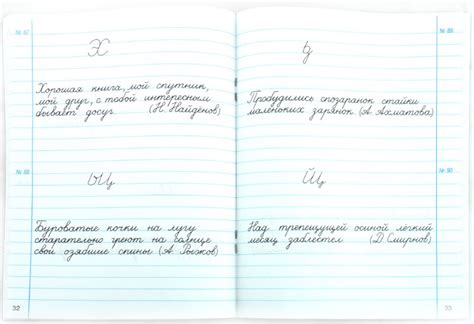 № 87
Х
Хорошая книга, мой спутник,
мой друг, с тобой интересным
бывает досуг. (Н. Найдёнов)
№ 88
Буроватые кочки на лугу
старательно греют на солнце
свои озябшие спины (А. Рыжков)
32
№ 89
Пробудились спозаранок стайки
маленьких зарянок. (А. Ахматова)
№ 90
Над трепещущей осиной лёгкий
месяц заблестел. (Д. Смирнов)
33